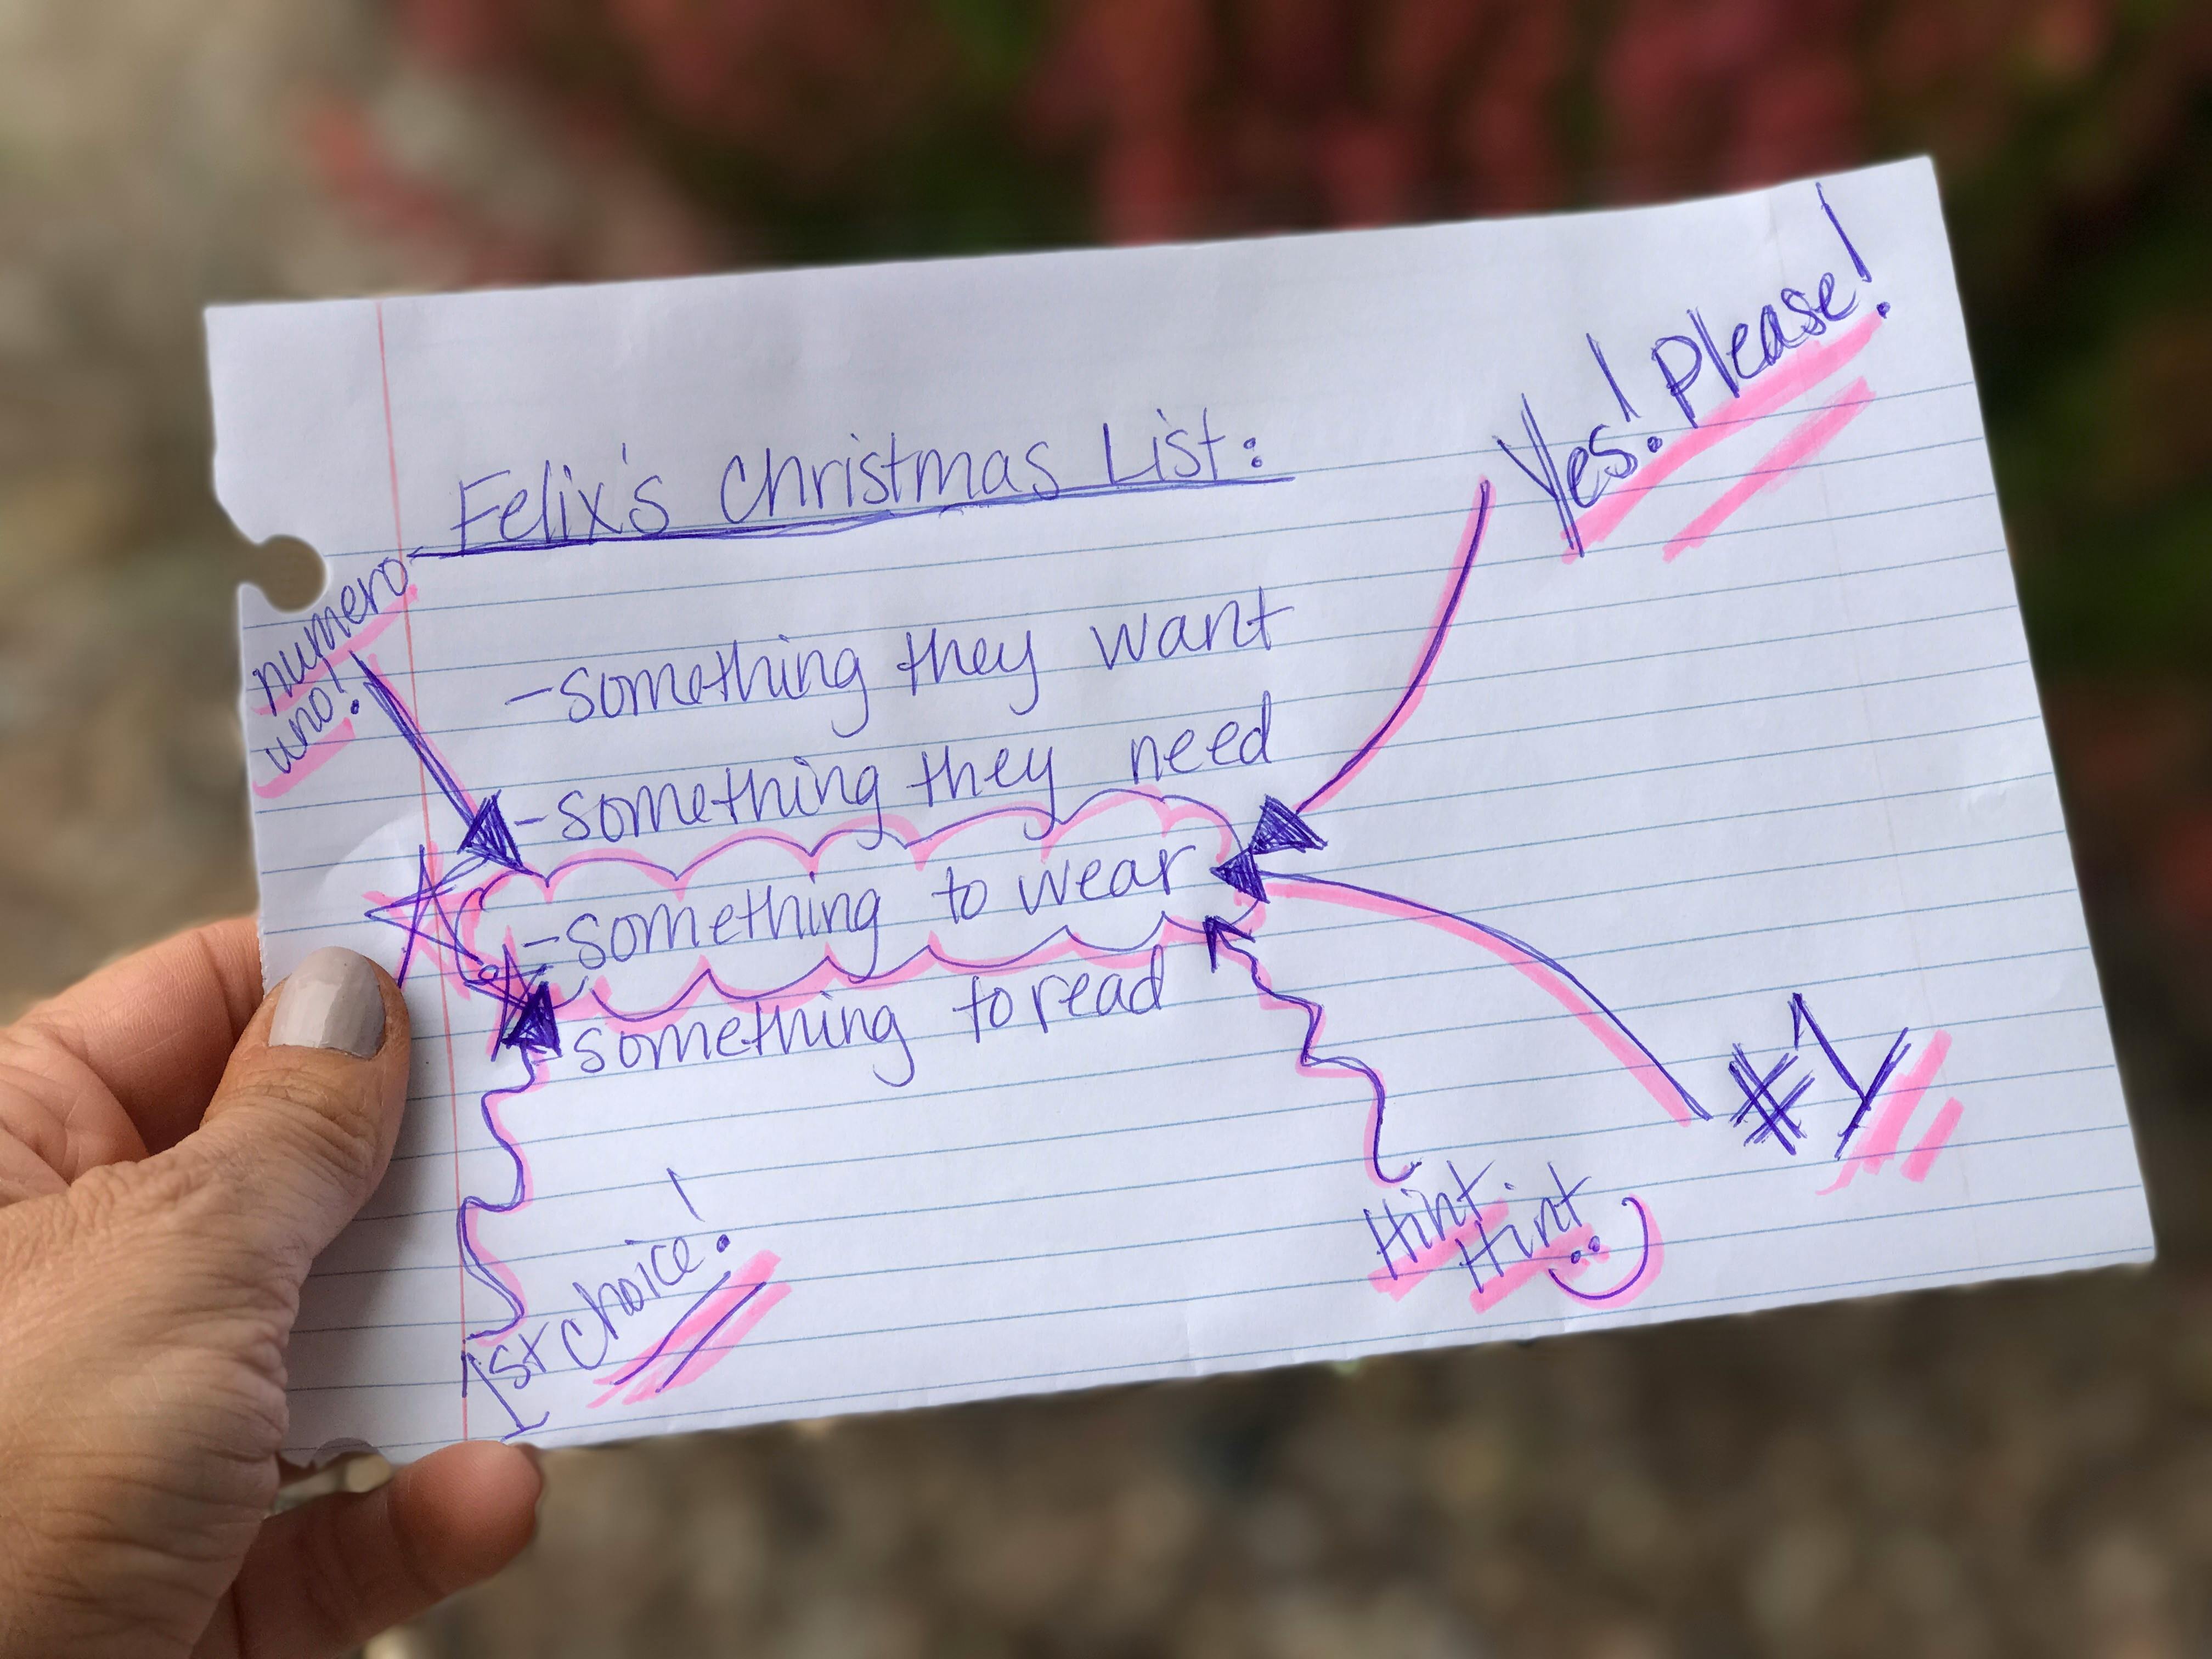 Yes! Please!
Felix's Christmas List:
numero
uno!
-something they want
-something they need
-something to wear
-something to read
#1
Hint
Hint
1st choice!